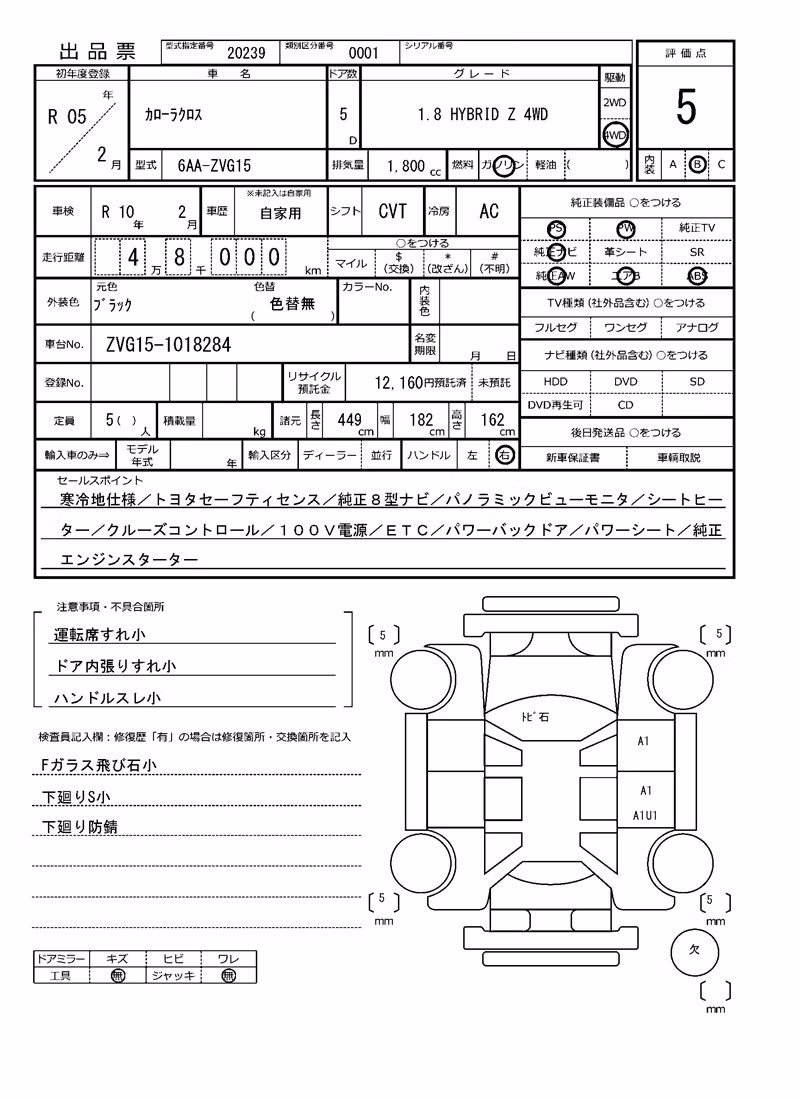 出品票
型式指定番号 20239 類別区分番号 0001 シリアル番号
評価点
5
初年度登録 車名 ドア数 グレード 駆動
R 05 年 2 月
カローラクロス
5 D
1.8 HYBRID Z 4WD
2WD
4WD
型式 6AA-ZVG15 排気量 1,800 cc 燃料 ガソリン 軽油 ( )
内装 A B C
車検 R 10 年 2 月 車歴 ※未記入は自家用 自家用 シフト CVT 冷房 AC
純正装備品 ○をつける
PS PW 純正TV
純正ナビ 革シート SR
純正AW エアB ABS
走行距離 4 万 8 千 0 0 0 km
○をつける
マイル $(交換) *(改ざん) #(不明)
外装色 元色 ブラック 色替 ( 色替無 ) カラーNo. 内装色
TV種類(社外品含む)○をつける
フルセグ ワンセグ アナログ
車台No. ZVG15-1018284 名変期限 月 日
ナビ種類(社外品含む)○をつける
HDD DVD SD
DVD再生可 CD
登録No. リサイクル預託金 12,160円預託済 未預託
定員 5( ) 人 積載量 kg 諸元 長さ 449 cm 幅 182 cm 高さ 162 cm
後日発送品 ○をつける
新車保証書 車輌取説
輸入車のみ⇒ モデル年式 年 輸入区分 ディーラー 並行 ハンドル 左 右
セールスポイント
寒冷地仕様/トヨタセーフティセンス/純正8型ナビ/パノラミックビューモニタ/シートヒー
ター/クルーズコントロール/100V電源/ETC/パワーバックドア/パワーシート/純正
エンジンスターター
注意事項・不具合箇所
運転席すれ小
ドア内張りすれ小
ハンドルスレ小
検査員記入欄:修復歴「有」の場合は修復箇所・交換箇所を記入
Fガラス飛び石小
下廻りS小
下廻り防錆
ドアミラー キズ ヒビ ワレ
工具 無 ジャッキ 無
[5] mm
[5] mm
トビ石
A1
A1
A1U1
[5] mm
[5] mm
欠
[ ] mm